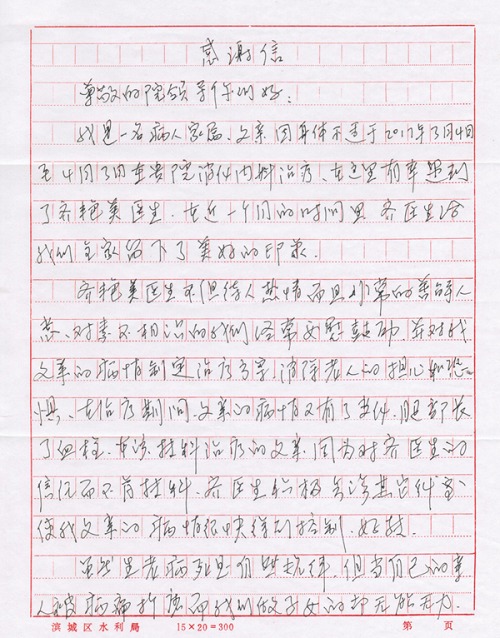 感谢信
尊敬的院领导你们好：
我是一名病人家属，父亲因身体不适于2017年3月4日
至4月3日在贵院消化内科治疗，在这里有幸遇到
了齐艳美医生，在近一个月的时间里齐医生给
我们全家留下了美好的印象。
齐艳美医生不但待人热情而且非常的善解人
意，对素不相识的我们经常安慰鼓励，并对我
父亲的病情制定治疗方案，消除老人的担心和恐
惧。在治疗期间，父亲的病情又有了变化，腿部长
了血栓，在该转科治疗的父亲，因为对齐医生的
信任而不肯转科，齐医生积极
使我父亲的病情很快得到控制、好转。
虽然生老病死是自然规律，但当自己的亲
人被病痛折磨而我们做子女的却无能无力
滨城区水利局 15×20=300 第 页